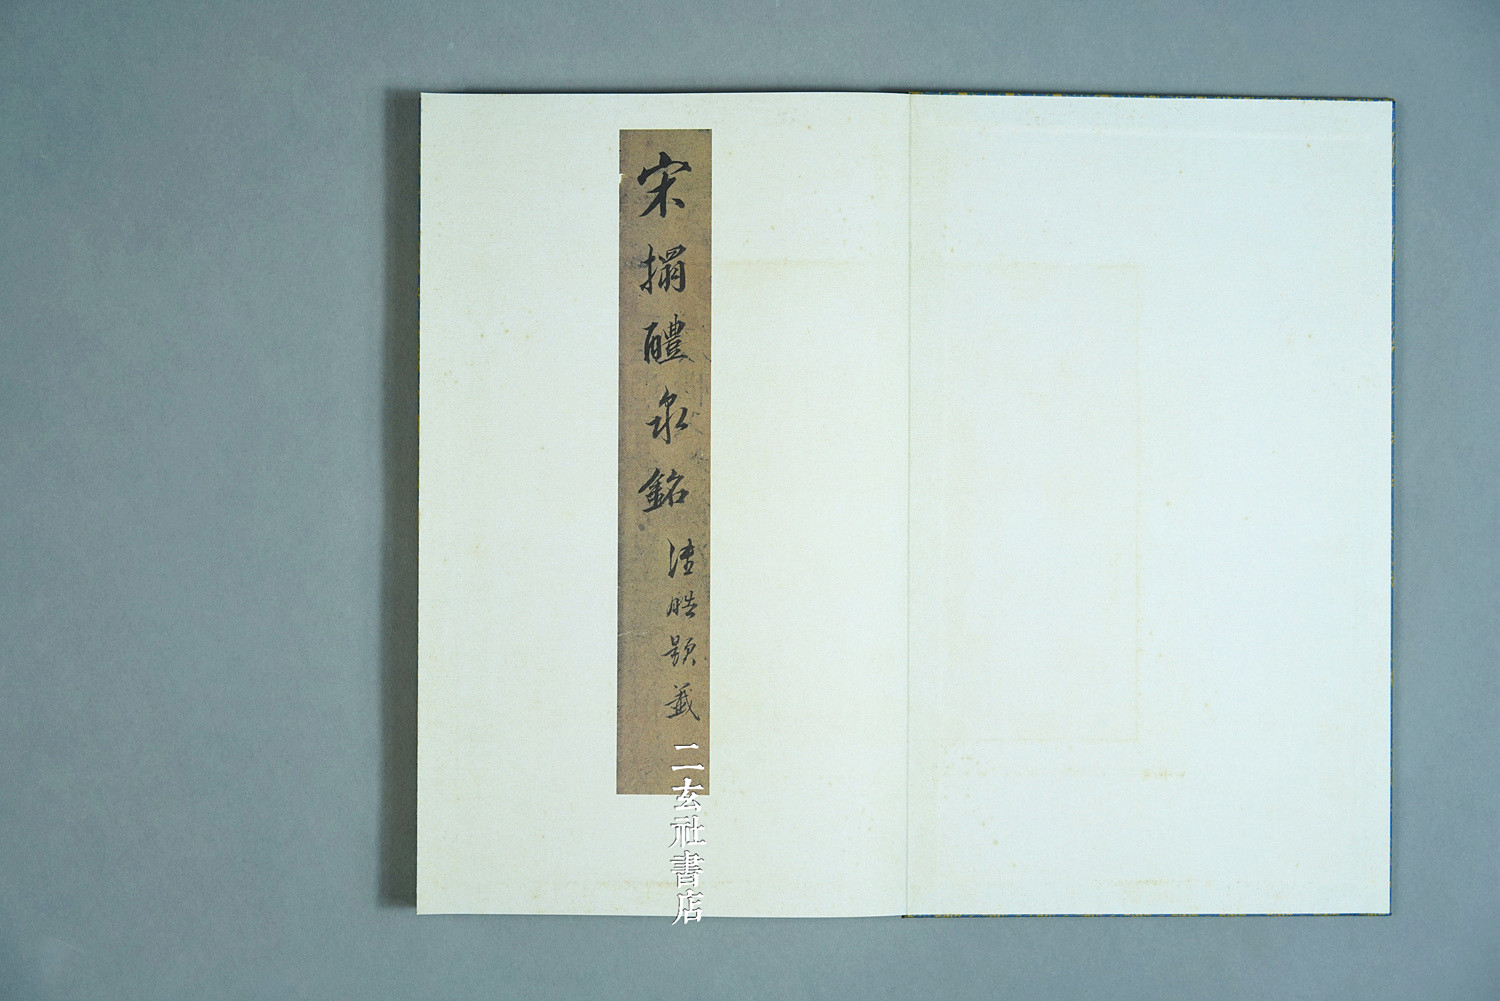 宋搨醴泉銘
題籤
二玄社書店